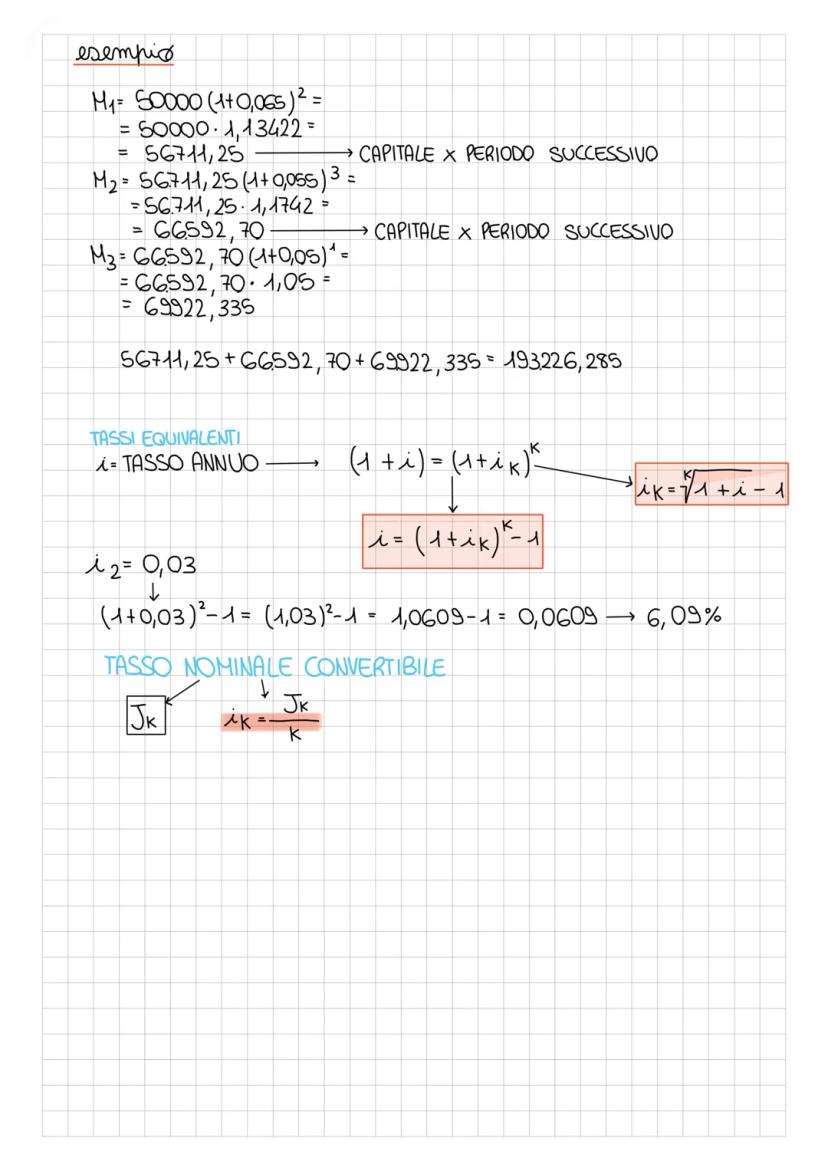 esempio
M₁= 50000(1+0,065)² =
= 50000·1,13422=
= 56711,25 → CAPITALE x PERIODO SUCCESSIVO
M₂= 56711,25(1+0,055)³ =
=56711,25·1,1742 =
= 66592,70 → CAPITALE x PERIODO SUCCESSIVO
M₃= 66592,70(1+0,05)¹ =
= 66592,70·1,05 =
= 69922,335
56711,25+66592,70+69922,335= 193226,285
TASSI EQUIVALENTI
i= TASSO ANNUO → (1+i)=(1+iₖ)ᴷ
iₖ=ᴷ√1+i-1
i=(1+iₖ)ᴷ-1
i₂= 0,03
(1+0,03)²-1= (1,03)²-1= 1,0609-1= 0,0609 → 6,09%
TASSO NOMINALE CONVERTIBILE
Jₖ iₖ=Jₖ/K